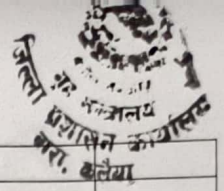 गृह
मन्त्रालय
जिल्ला प्रशासन कार्यालय
बारा, कलैया